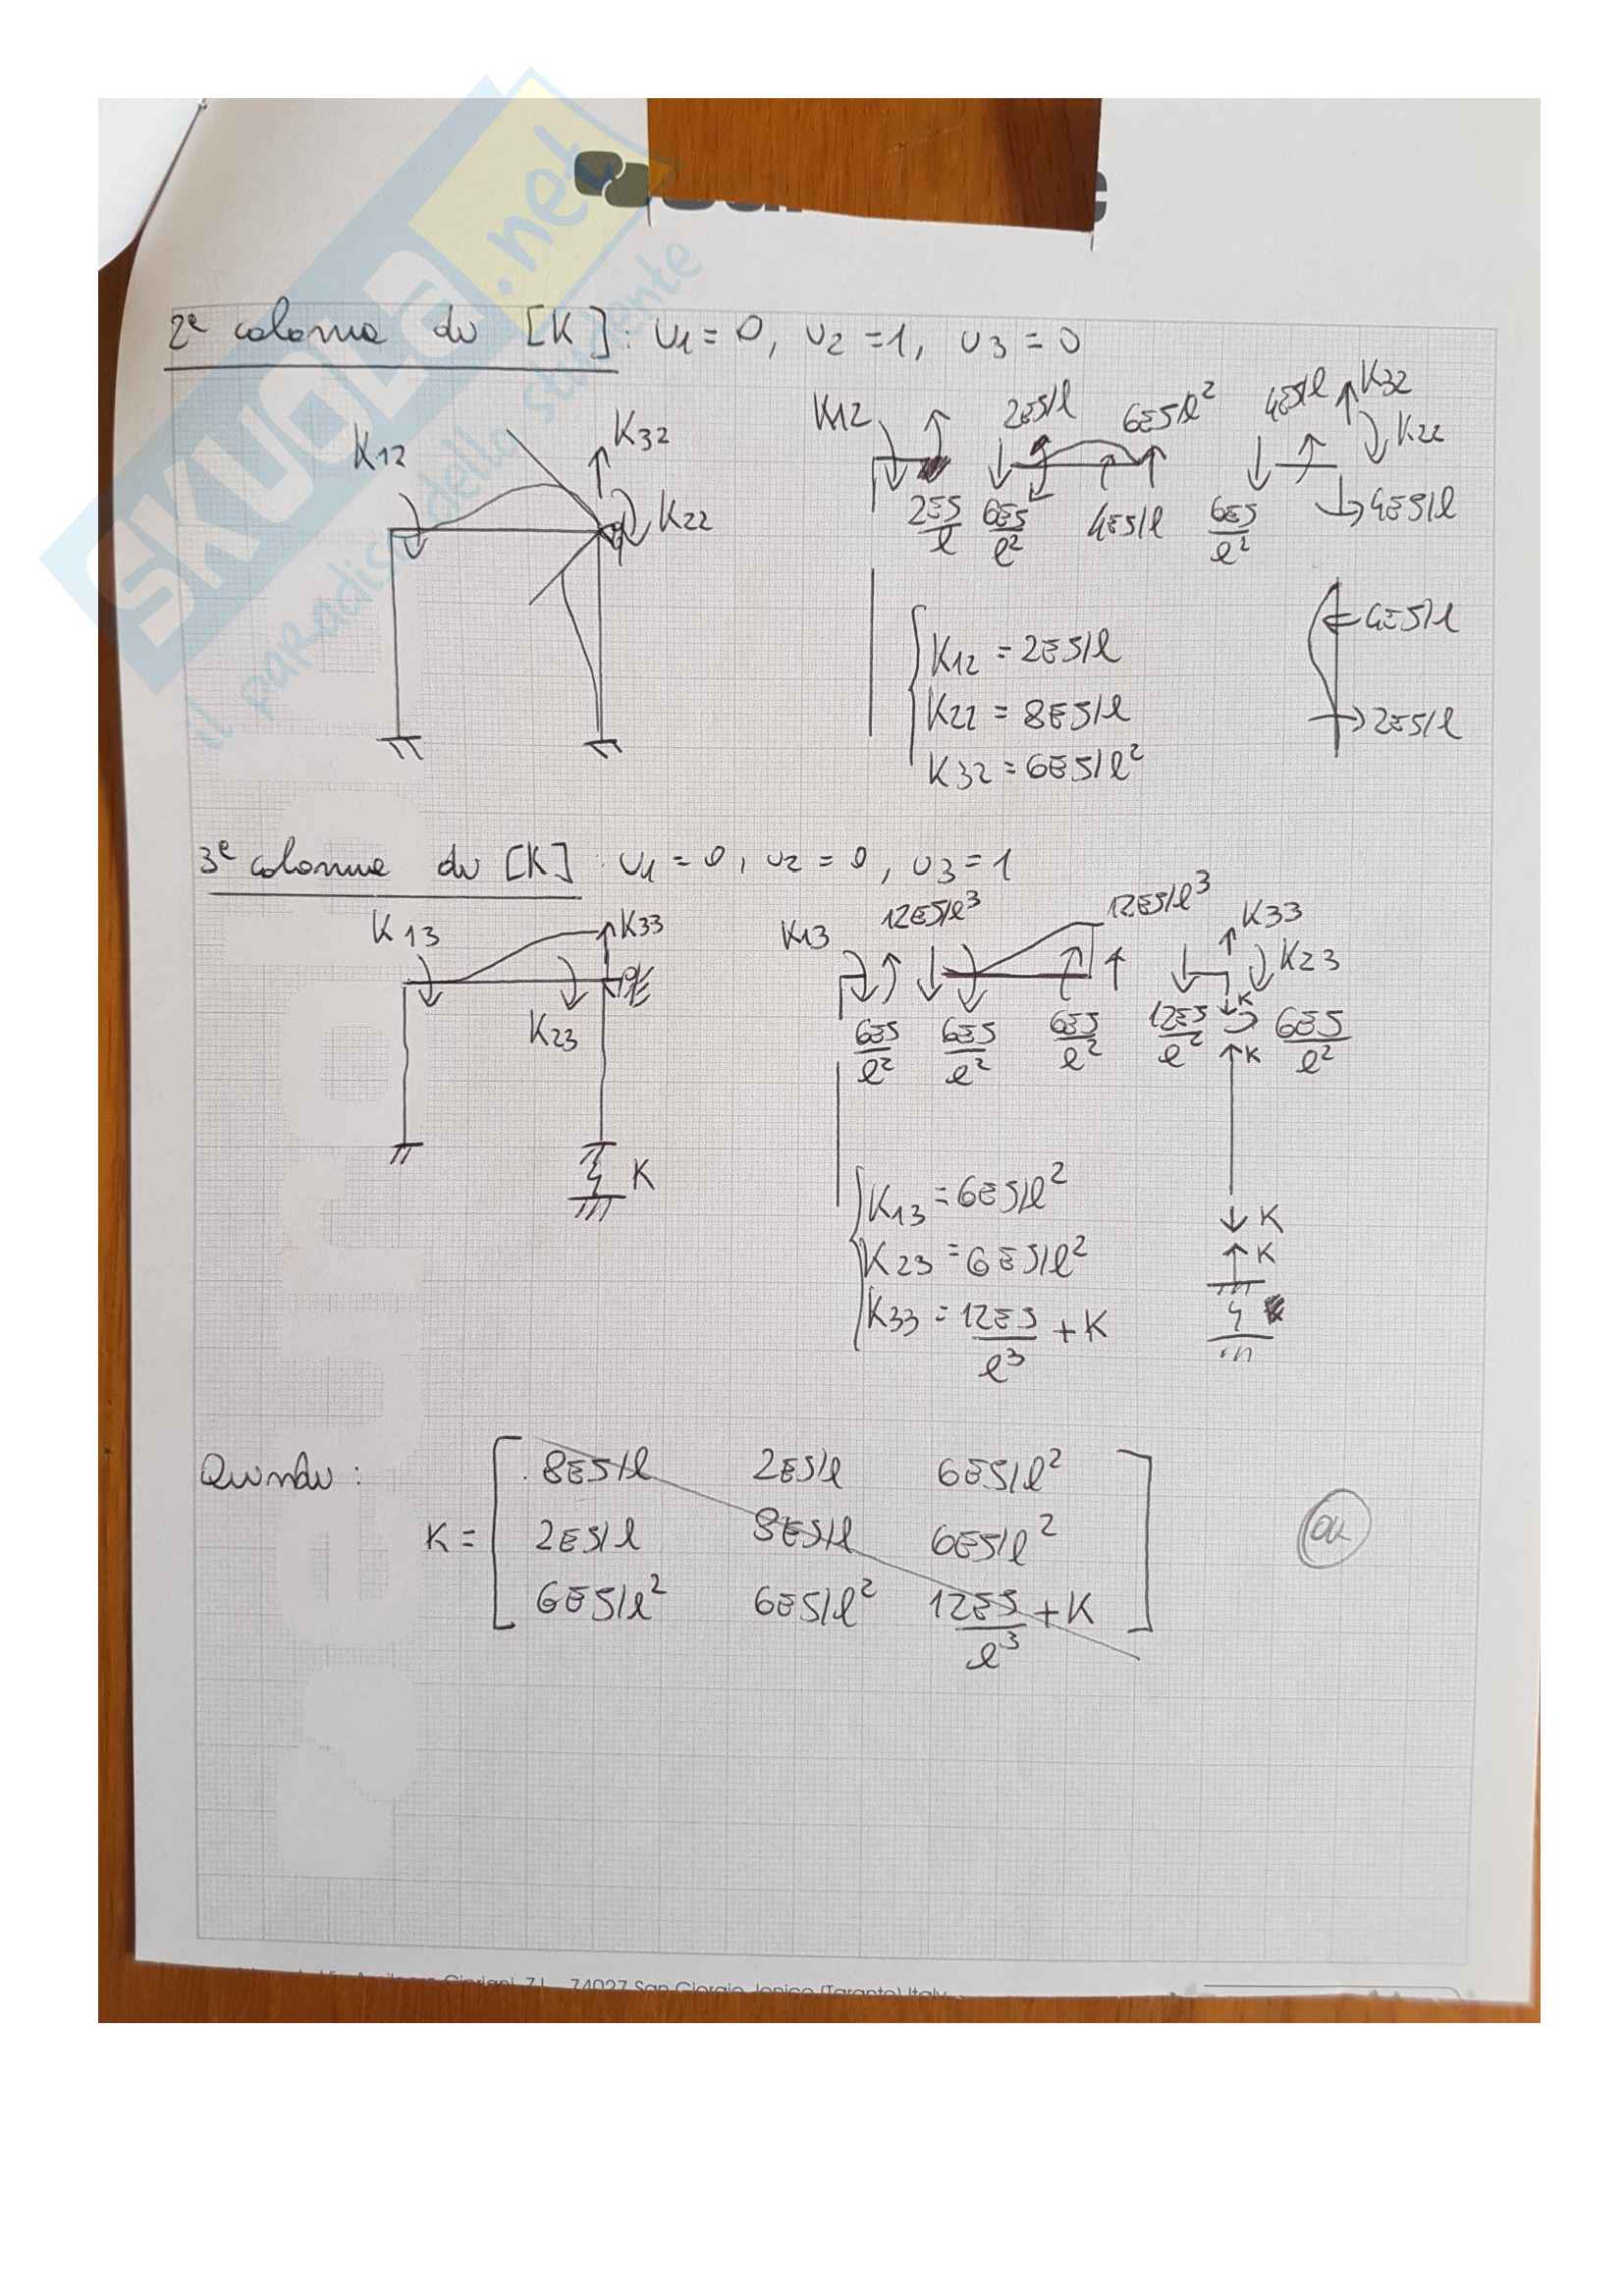 SKUOLA.net
il paradiso dello studente
2ª colonna di [K]: U1=0, U2=1, U3=0
K12
K32
K22
K12
2EJ/l
6EJ/l²
4EJ/l
K32
K22
2EJ/l
6EJ/l²
4EJ/l
6EJ/l²
4EJ/l
K12 = 2EJ/l
K22 = 8EJ/l
K32 = 6EJ/l²
4EJ/l
2EJ/l
3ª colonna di [K]: U1=0, U2=0, U3=1
K13
K33
K23
K
K13
12EJ/l³
12EJ/l³
K33
K23
6EJ/l²
6EJ/l²
6EJ/l²
12EJ/l²
K
K
6EJ/l²
K13 = 6EJ/l²
K23 = 6EJ/l²
K33 = 12EJ/l³ + K
K
K
Quindi:
K =
8EJ/l 2EJ/l 6EJ/l²
2EJ/l 8EJ/l 6EJ/l²
6EJ/l² 6EJ/l² 12EJ/l³ + K
OK
74027 San Giorgio Jonico (Taranto) Italy